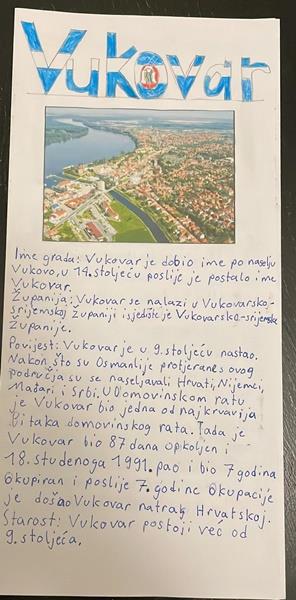 Vukovar
Ime grada: Vukovar je dobio ime po naselju
Vukovo, u 14. stoljeću poslije je postalo ime
Vukovar.
Županija: Vukovar se nalazi u Vukovarsko-
srijemskoj županiji i sjedište je Vukovarsko-srijemske
županije.
Povijest: Vukovar je u 9. stoljeću nastao.
Nakon što su Osmanlije protjerane s ovog
područja su se naseljavali Hrvati, Nijemci,
Mađari i Srbi. U Domovinskom ratu
je Vukovar bio jedna od najkrvavija
bitaka domovinskog rata. Tada je
Vukovar bio 87 dana opkoljen i
18. studenoga 1991. pao i bio 7 godina
okupiran i poslije 7. godine okupacije
je došao Vukovar natrag Hrvatskoj.
Starost: Vukovar postoji već od
9. stoljeća.